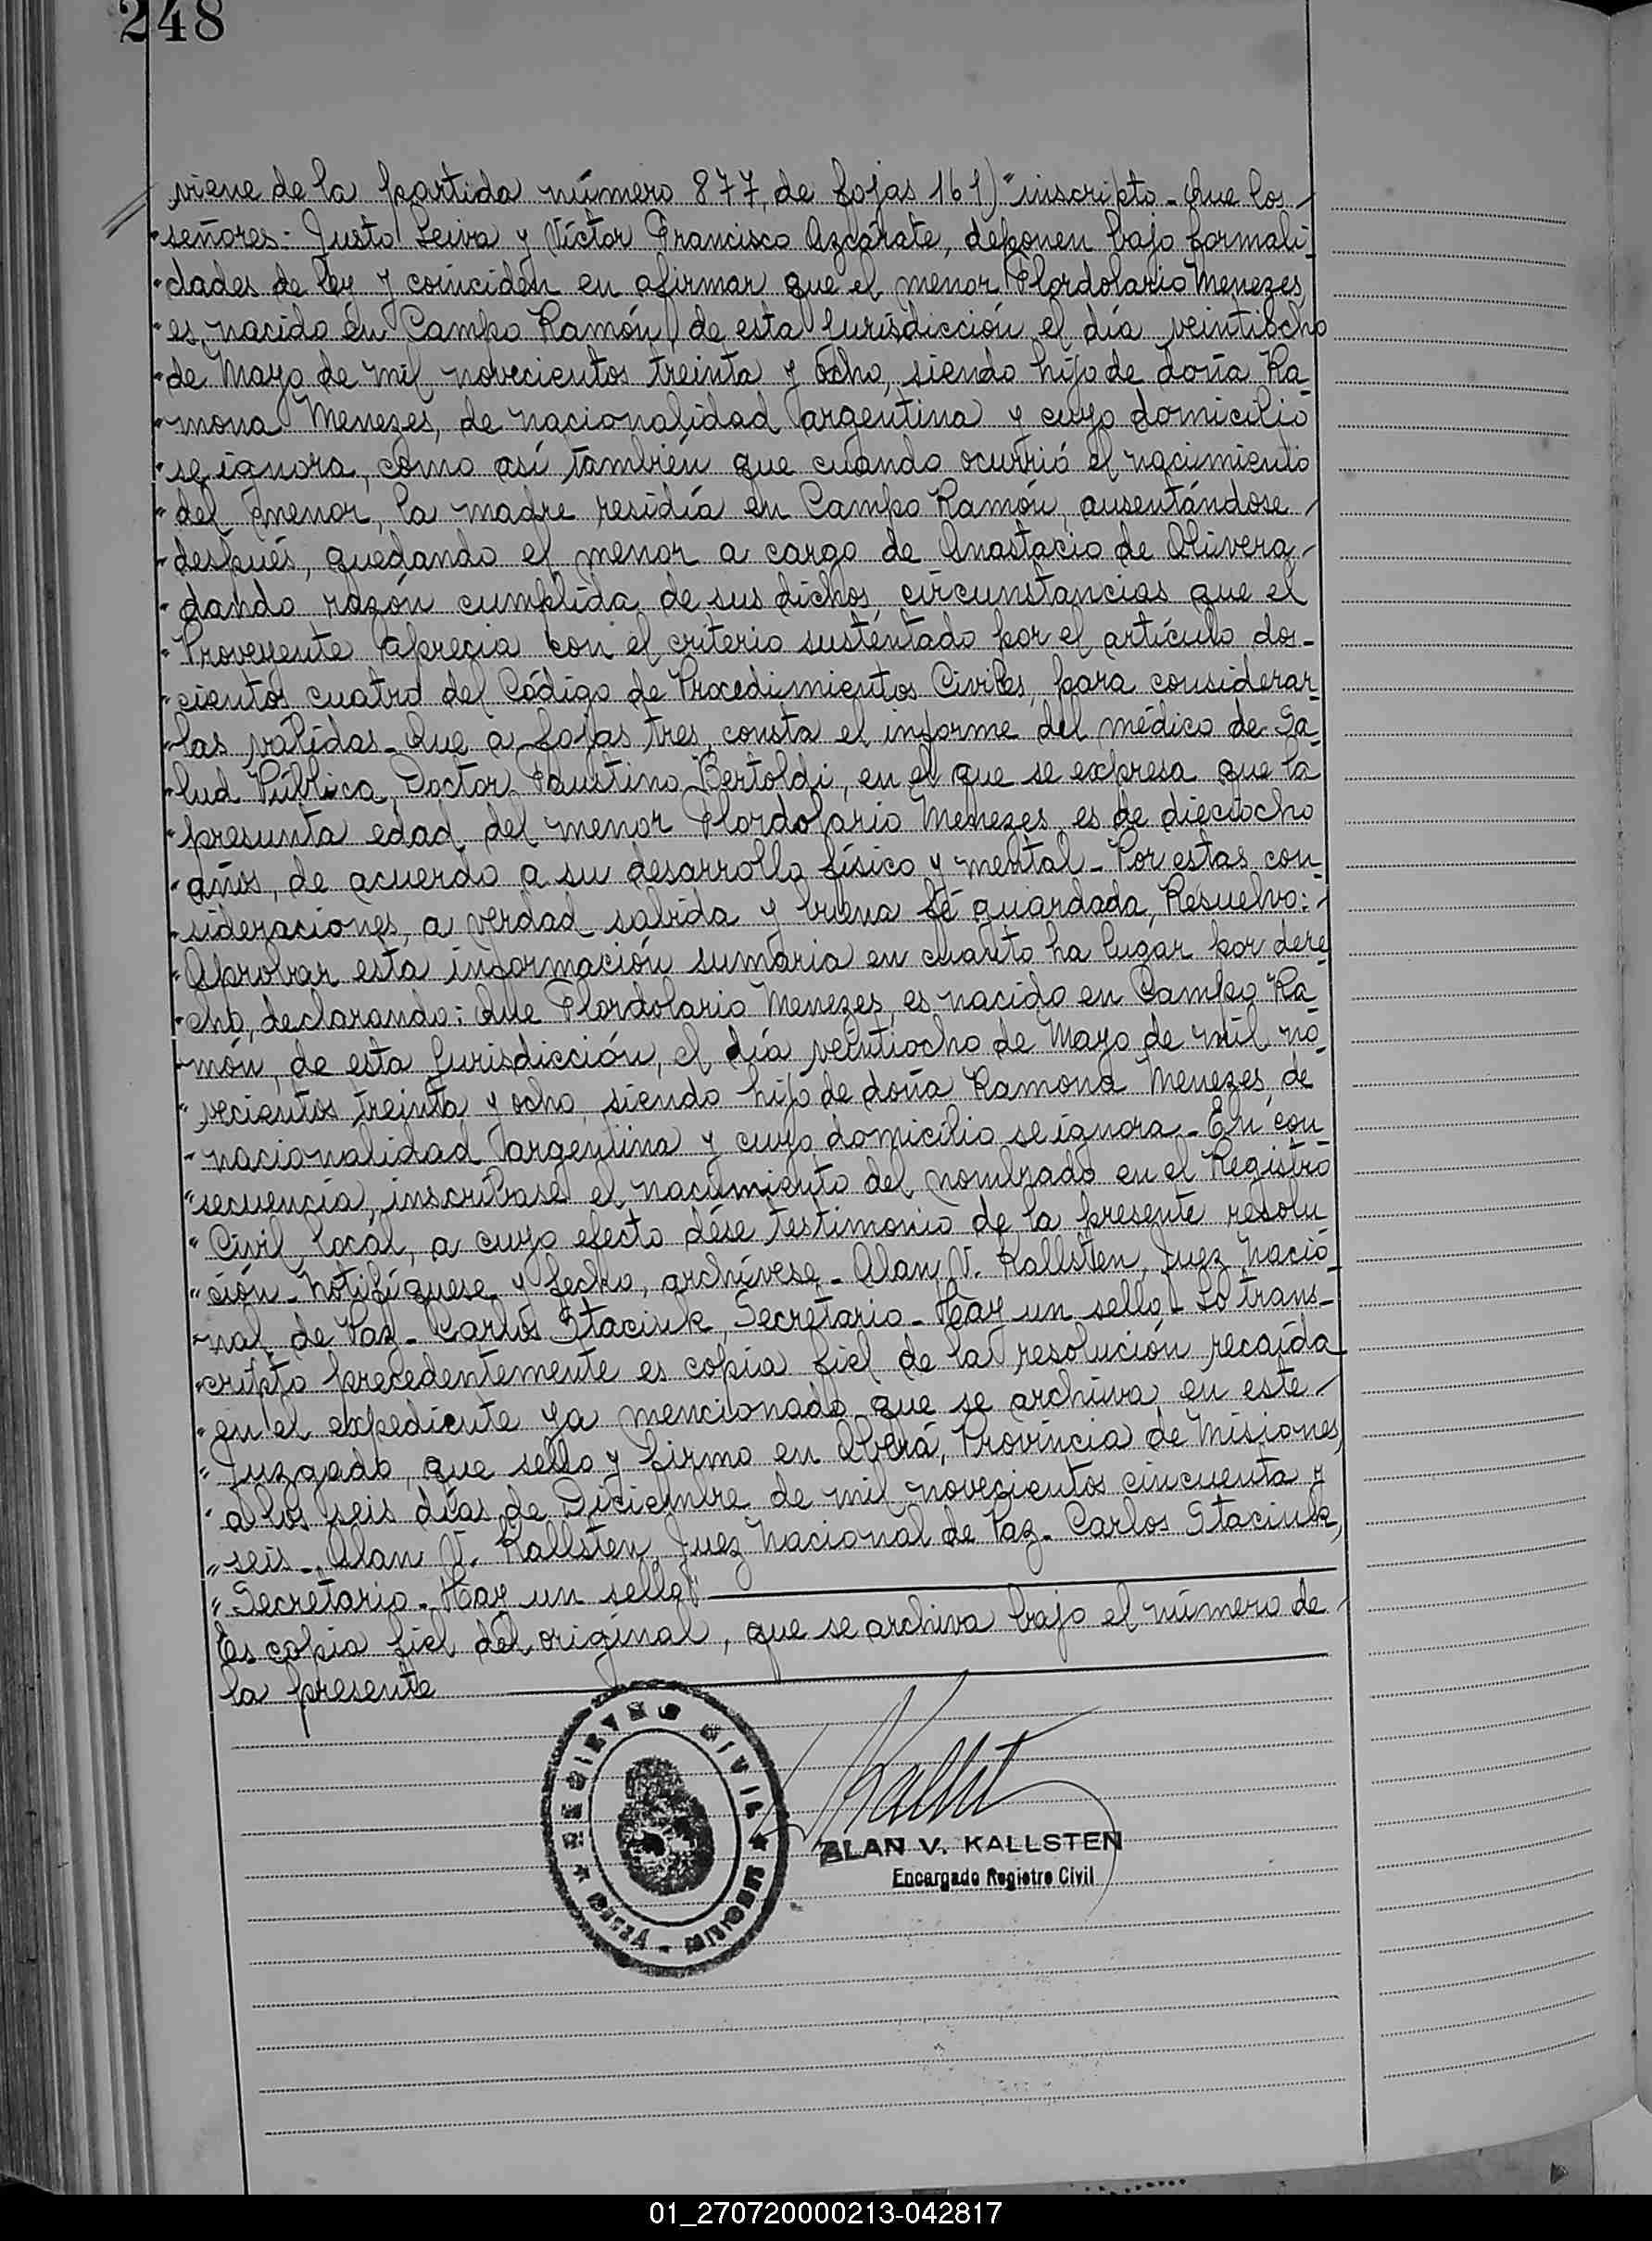 248
viene de la partida número 877, de fojas 161) "inscripto - Que los
"señores - Justo Leiva y Víctor Francisco Azcárate, deponen bajo formali-
"dades de ley y coinciden en afirmar que el menor Flordolario Menezes
"es nacido en Campo Ramón, de esta Jurisdicción el día veintiocho
"de Mayo de mil novecientos treinta y ocho, siendo hijo de doña Ra-
"mona Menezes, de nacionalidad argentina y cuyo domicilio
"se ignora, como así también que cuando ocurrió el nacimiento
"del menor, la madre residía en Campo Ramón, ausentándose
"después, quedando el menor a cargo de Anastacio de Olivera,
"dando razón cumplida de sus dichos, circunstancias que el
"Proveyente aprecia con el criterio sustentado por el artículo dos-
"cientos cuatro del Código de Procedimientos Civiles, para considerar-
"las válidas - Que a fojas tres, consta el informe del médico de Sa-
"lud Pública, Doctor Faustino Bertoldi, en el que se expresa que la
"presunta edad del menor Flordolario Menezes es de dieciocho
"años, de acuerdo a su desarrollo físico y mental - Por estas con-
"sideraciones, a verdad sabida y buena fé guardada, Resuelvo:
"Aprobar esta información sumaria en cuanto ha lugar por dere
"cho, declarando: Que Flordolario Menezes, es nacido en Campo Ra-
"món, de esta Jurisdicción, el día veintiocho de Mayo de mil no-
"vecientos treinta y ocho, siendo hijo de doña Ramona Menezes, de
"nacionalidad argentina y cuyo domicilio se ignora - En con-
"secuencia, inscríbase el nacimiento del nombrado en el Registro
"Civil local, a cuyo efecto dése testimonio de la presente resolu-
"ción - Notifíquese y fecho, archívese - Alan V. Kallsten, Juez Nacio-
"nal de Paz - Carlos Staciuk, Secretario - Hay un sello - Lo trans-
"cripto precedentemente es copia fiel de la resolución recaída
"en el expediente ya mencionado que se archiva en este
"Juzgado, que sello y firmo en Oberá, Provincia de Misiones,
"a los seis días de Diciembre de mil novecientos cincuenta y
"seis - Alan V. Kallsten, Juez Nacional de Paz - Carlos Staciuk,
"Secretario - Hay un sello"
Es copia fiel del original, que se archiva bajo el número de
la presente
REGISTRO CIVIL
OBERÁ - MISIONES
ALAN V. KALLSTEN
Encargado Registro Civil
01_270720000213-042817